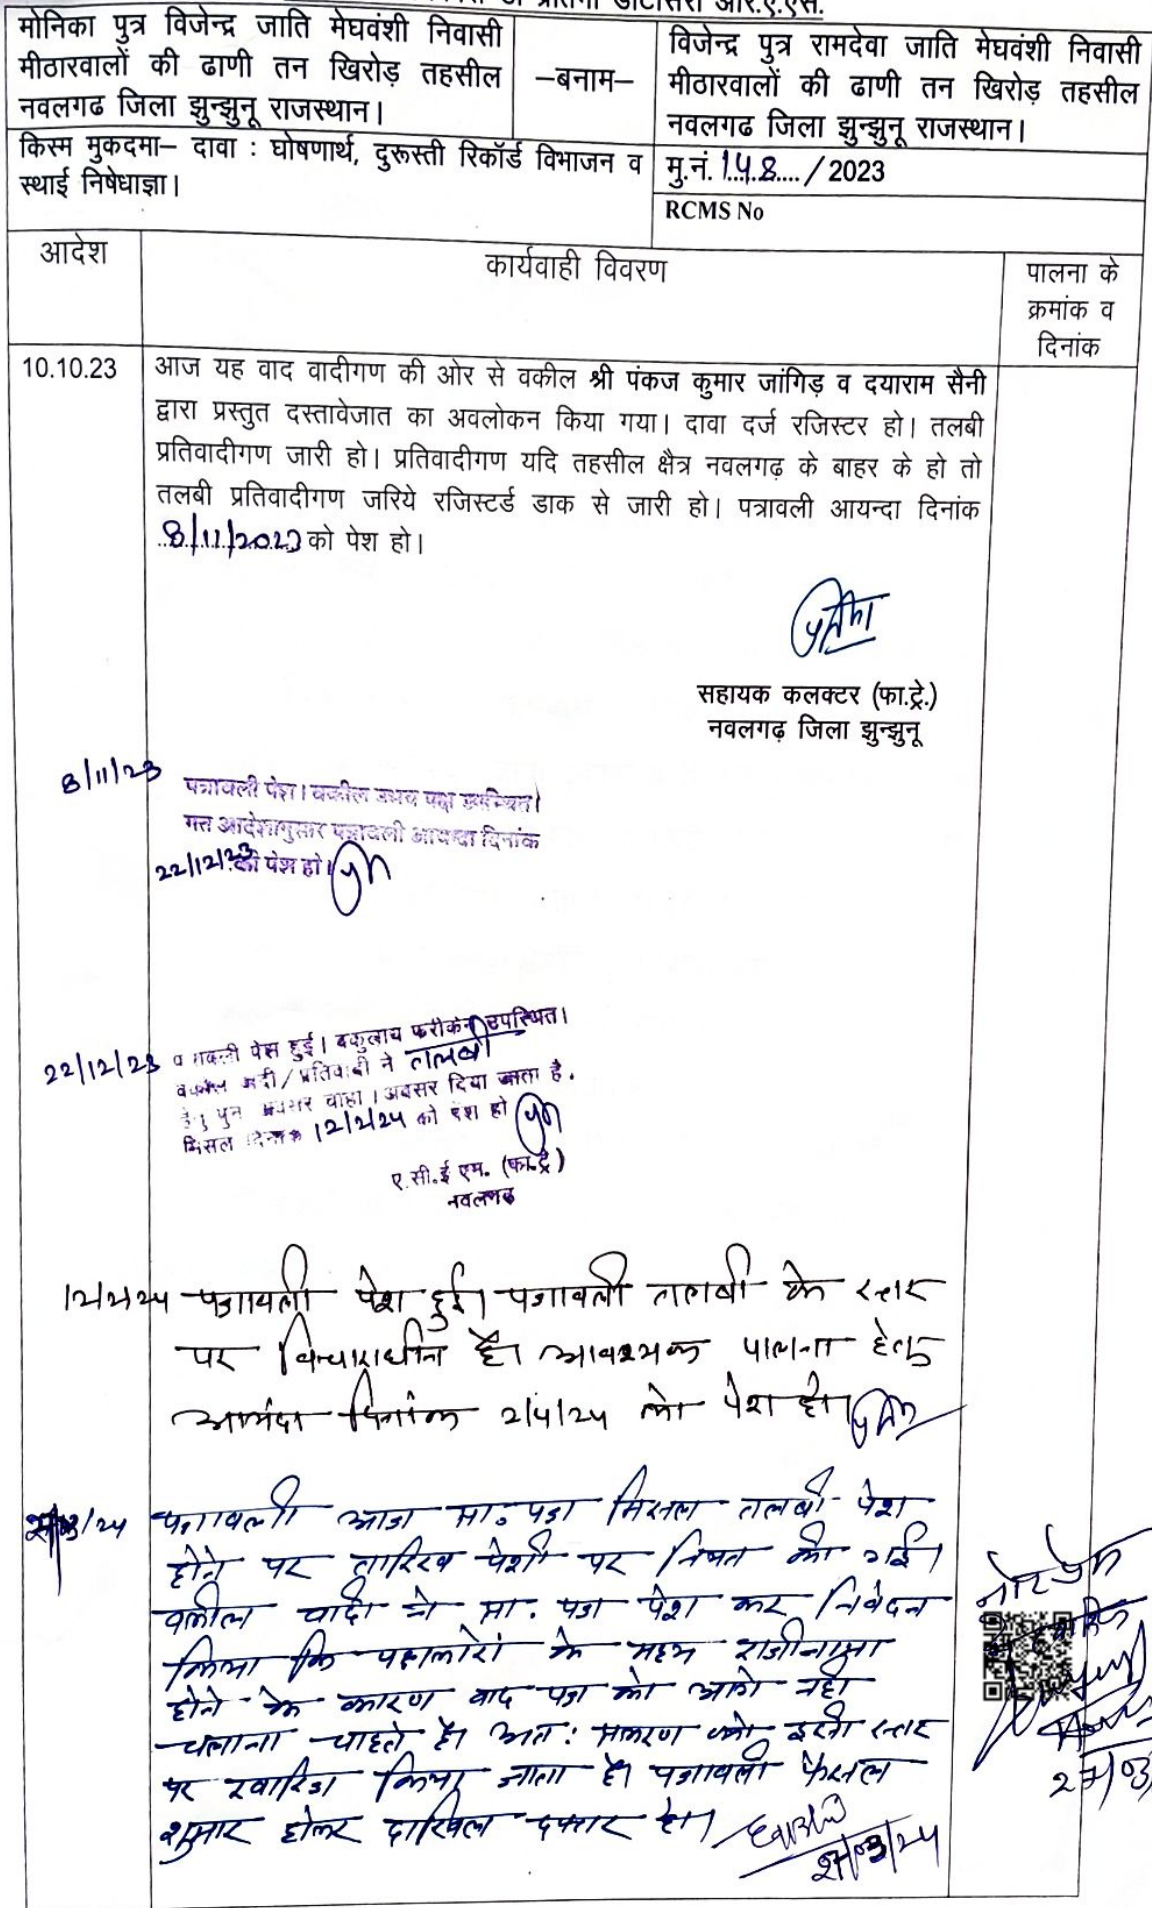 मोनिका पुत्र विजेन्द्र जाति मेघवंशी निवासी
मीठारवालों की ढाणी तन खिरोड़ तहसील
नवलगढ जिला झुन्झुनू राजस्थान।
–बनाम–
विजेन्द्र पुत्र रामदेवा जाति मेघवंशी निवासी
मीठारवालों की ढाणी तन खिरोड़ तहसील
नवलगढ जिला झुन्झुनू राजस्थान।
किस्म मुकदमा– दावा : घोषणार्थ, दुरूस्ती रिकॉर्ड विभाजन व
स्थाई निषेधाज्ञा।
मु.नं. 148 / 2023
RCMS No
आदेश
कार्यवाही विवरण
पालना के
क्रमांक व
दिनांक
10.10.23
आज यह वाद वादीगण की ओर से वकील श्री पंकज कुमार जांगिड़ व दयाराम सैनी
द्वारा प्रस्तुत दस्तावेजात का अवलोकन किया गया। दावा दर्ज रजिस्टर हो। तलबी
प्रतिवादीगण जारी हो। प्रतिवादीगण यदि तहसील क्षैत्र नवलगढ़ के बाहर के हो तो
तलबी प्रतिवादीगण जरिये रजिस्टर्ड डाक से जारी हो। पत्रावली आयन्दा दिनांक
8/11/2023 को पेश हो।
सहायक कलक्टर (फा.ट्रे.)
नवलगढ़ जिला झुन्झुनू
8/11/23
पत्रावली पेश। वकील उभय पक्ष उपस्थित।
गत आदेशानुसार पत्रावली आयन्दा दिनांक
22/12/23 को पेश हो।
22/12/23
पेस हुई। वकुलाय फरीकेन उपस्थित।
वकील वादी/प्रतिवादी ने तलबी
हेतु पुन अवसर चाहा। अवसर दिया जाता है.
मिसल दिनांक 12/2/24 को पेश हो
ए.सी.ई एम. (फा.ट्रे)
नवलगढ
12/2/24 पत्रावली पेश हुई। पत्रावली तलबी के स्तर
पर विचाराधीन है। आवश्यक पालना हेतु
आयंदा दिनांक 2/4/24 को पेश हो।
पत्रावली आज प्रा. पत्र मिसल तलबी पेश
होने पर तारिख पेशी पर नियत की गई।
वकील वादी ने प्रा. पत्र पेश कर निवेदन
किया कि पक्षकारों के मध्य राजीनामा
होने के कारण वाद पत्र को आगे नहीं
चलाना चाहते है। अत: प्रकरण को इसी स्तर
पर खारिज किया जाता है। पत्रावली फैसल
शुमार होकर दाखिल दफ्तर हो।